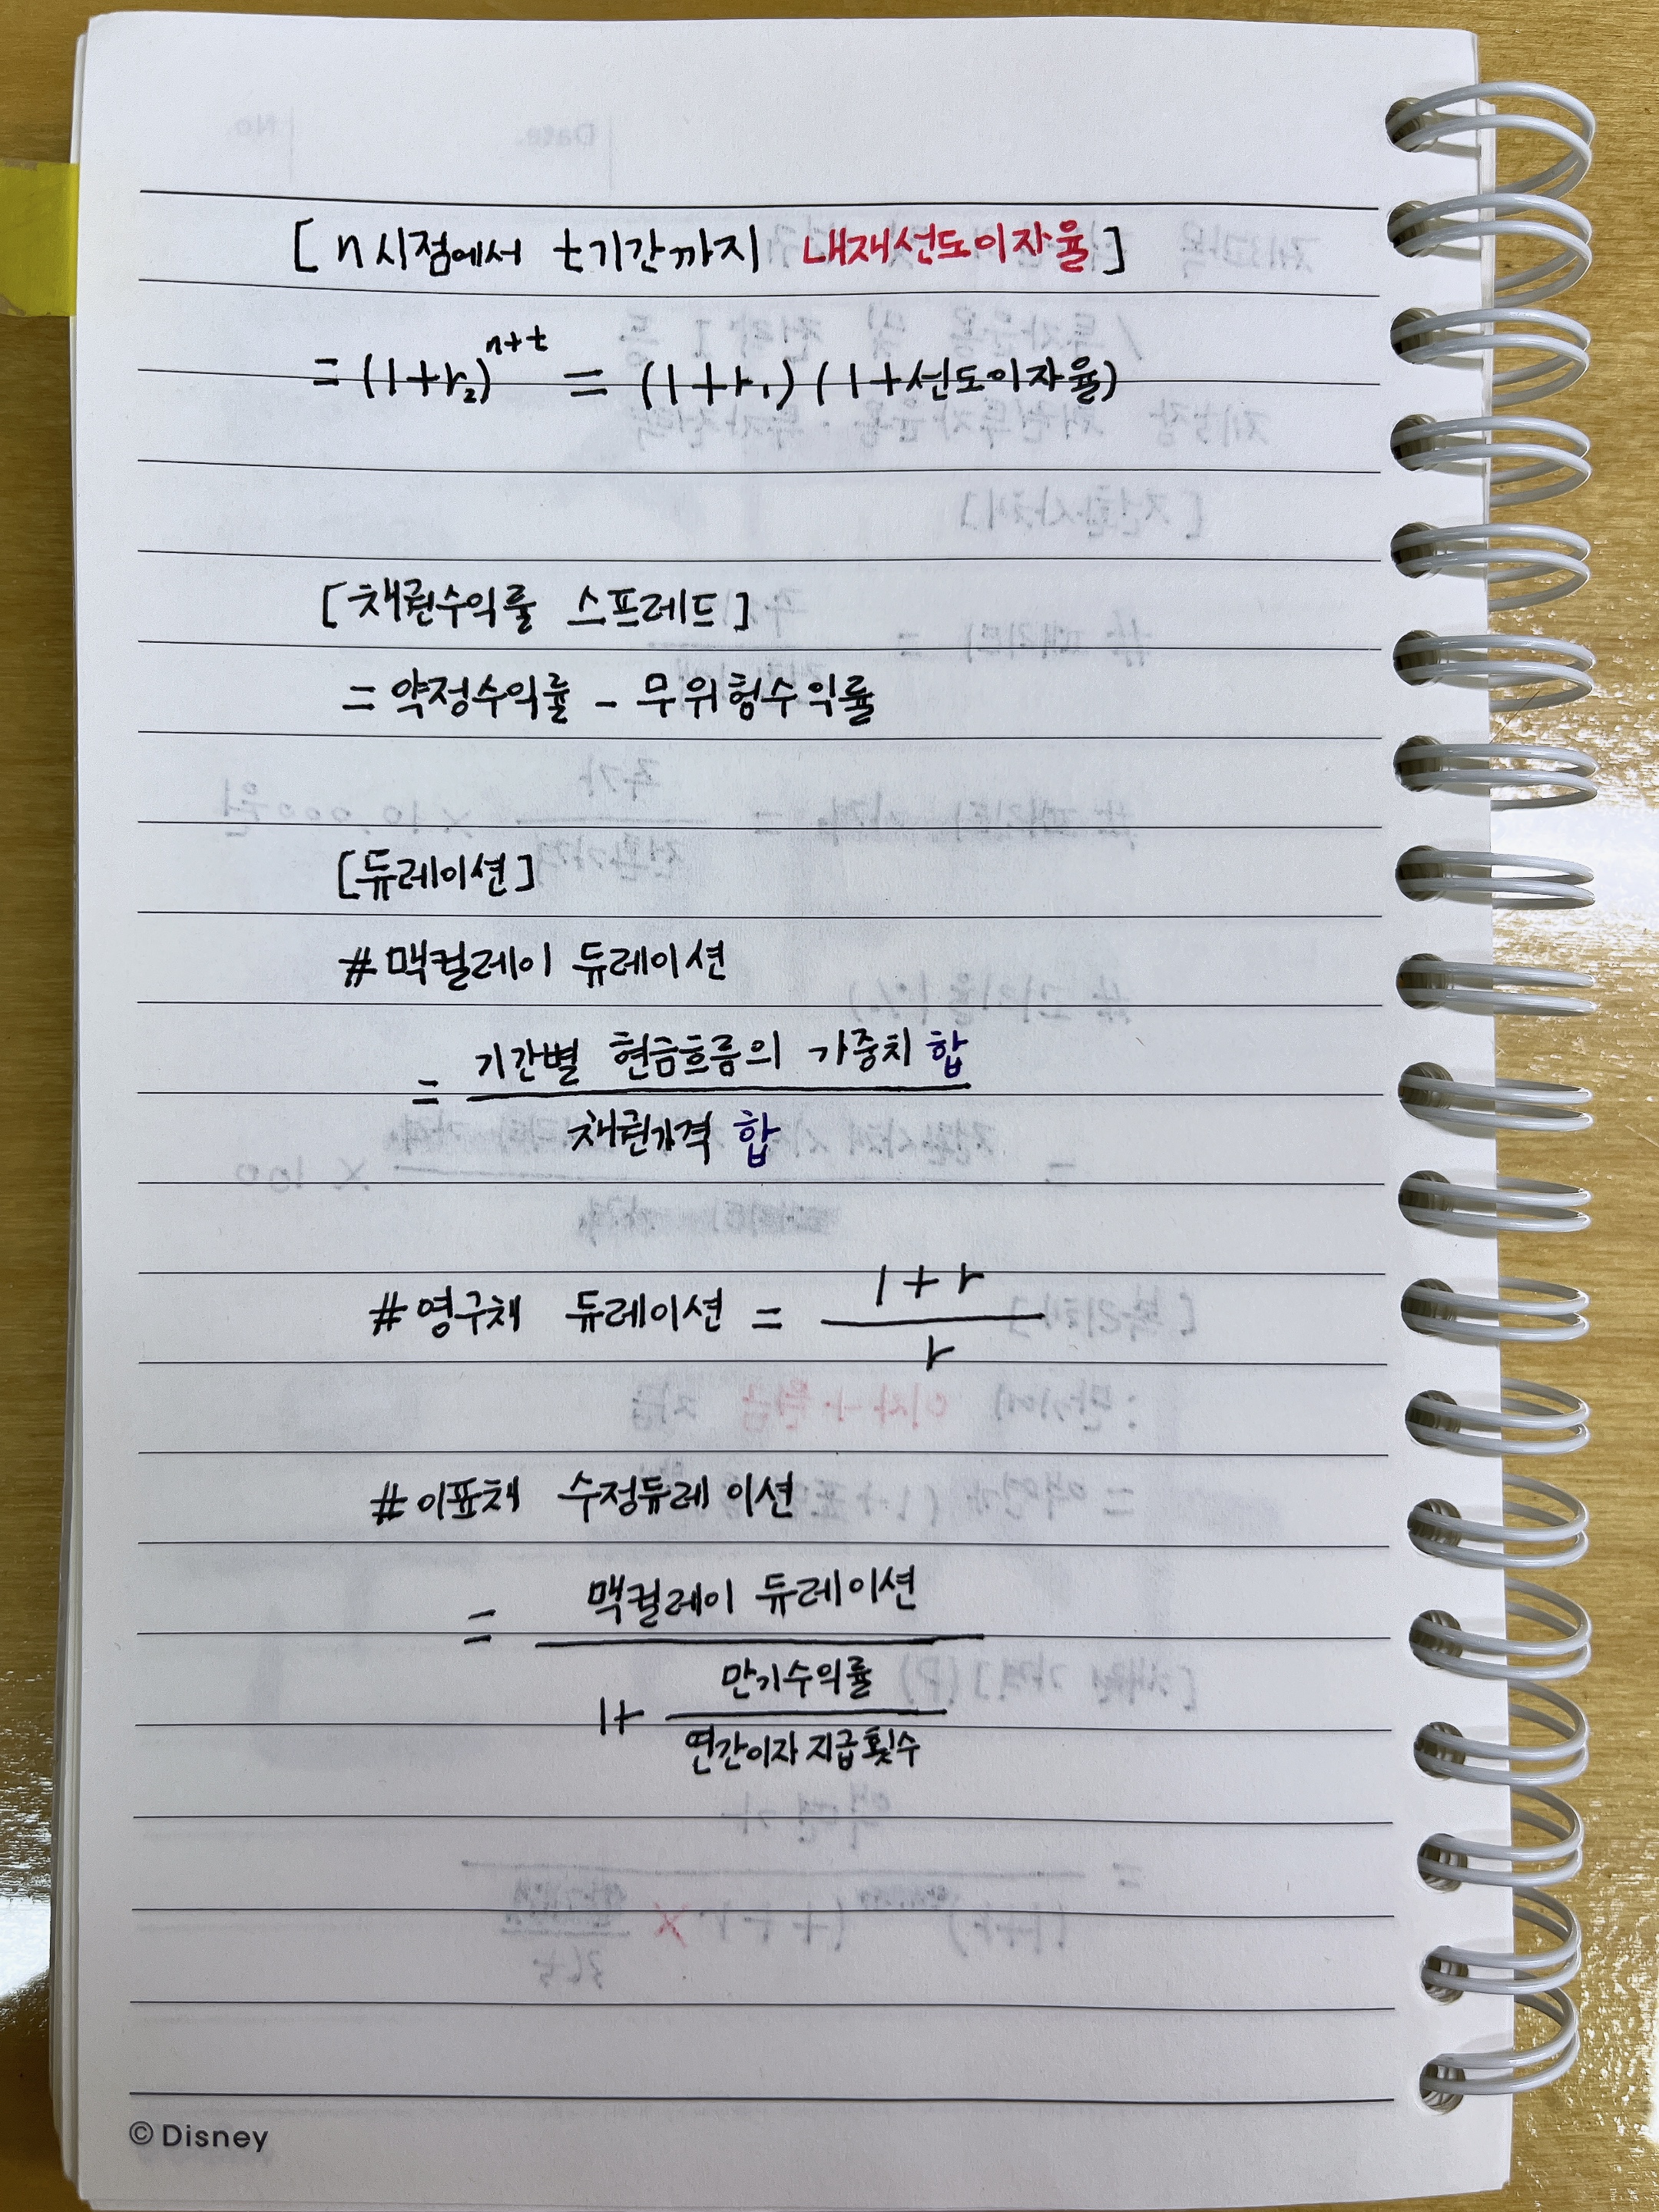 [n시점에서 t기간까지 내재선도이자율]
= (1+r₂)ⁿ⁺ᵗ = (1+r₁)(1+선도이자율)
[채권수익률 스프레드]
= 약정수익률 - 무위험수익률
[듀레이션]
#맥컬레이 듀레이션
= 기간별 현금흐름의 가중치 합
채권가격 합
#영구채 듀레이션 = 1+r
r
#이표채 수정듀레이션
= 맥컬레이 듀레이션
1+ 만기수익률
연간이자 지급횟수
© Disney